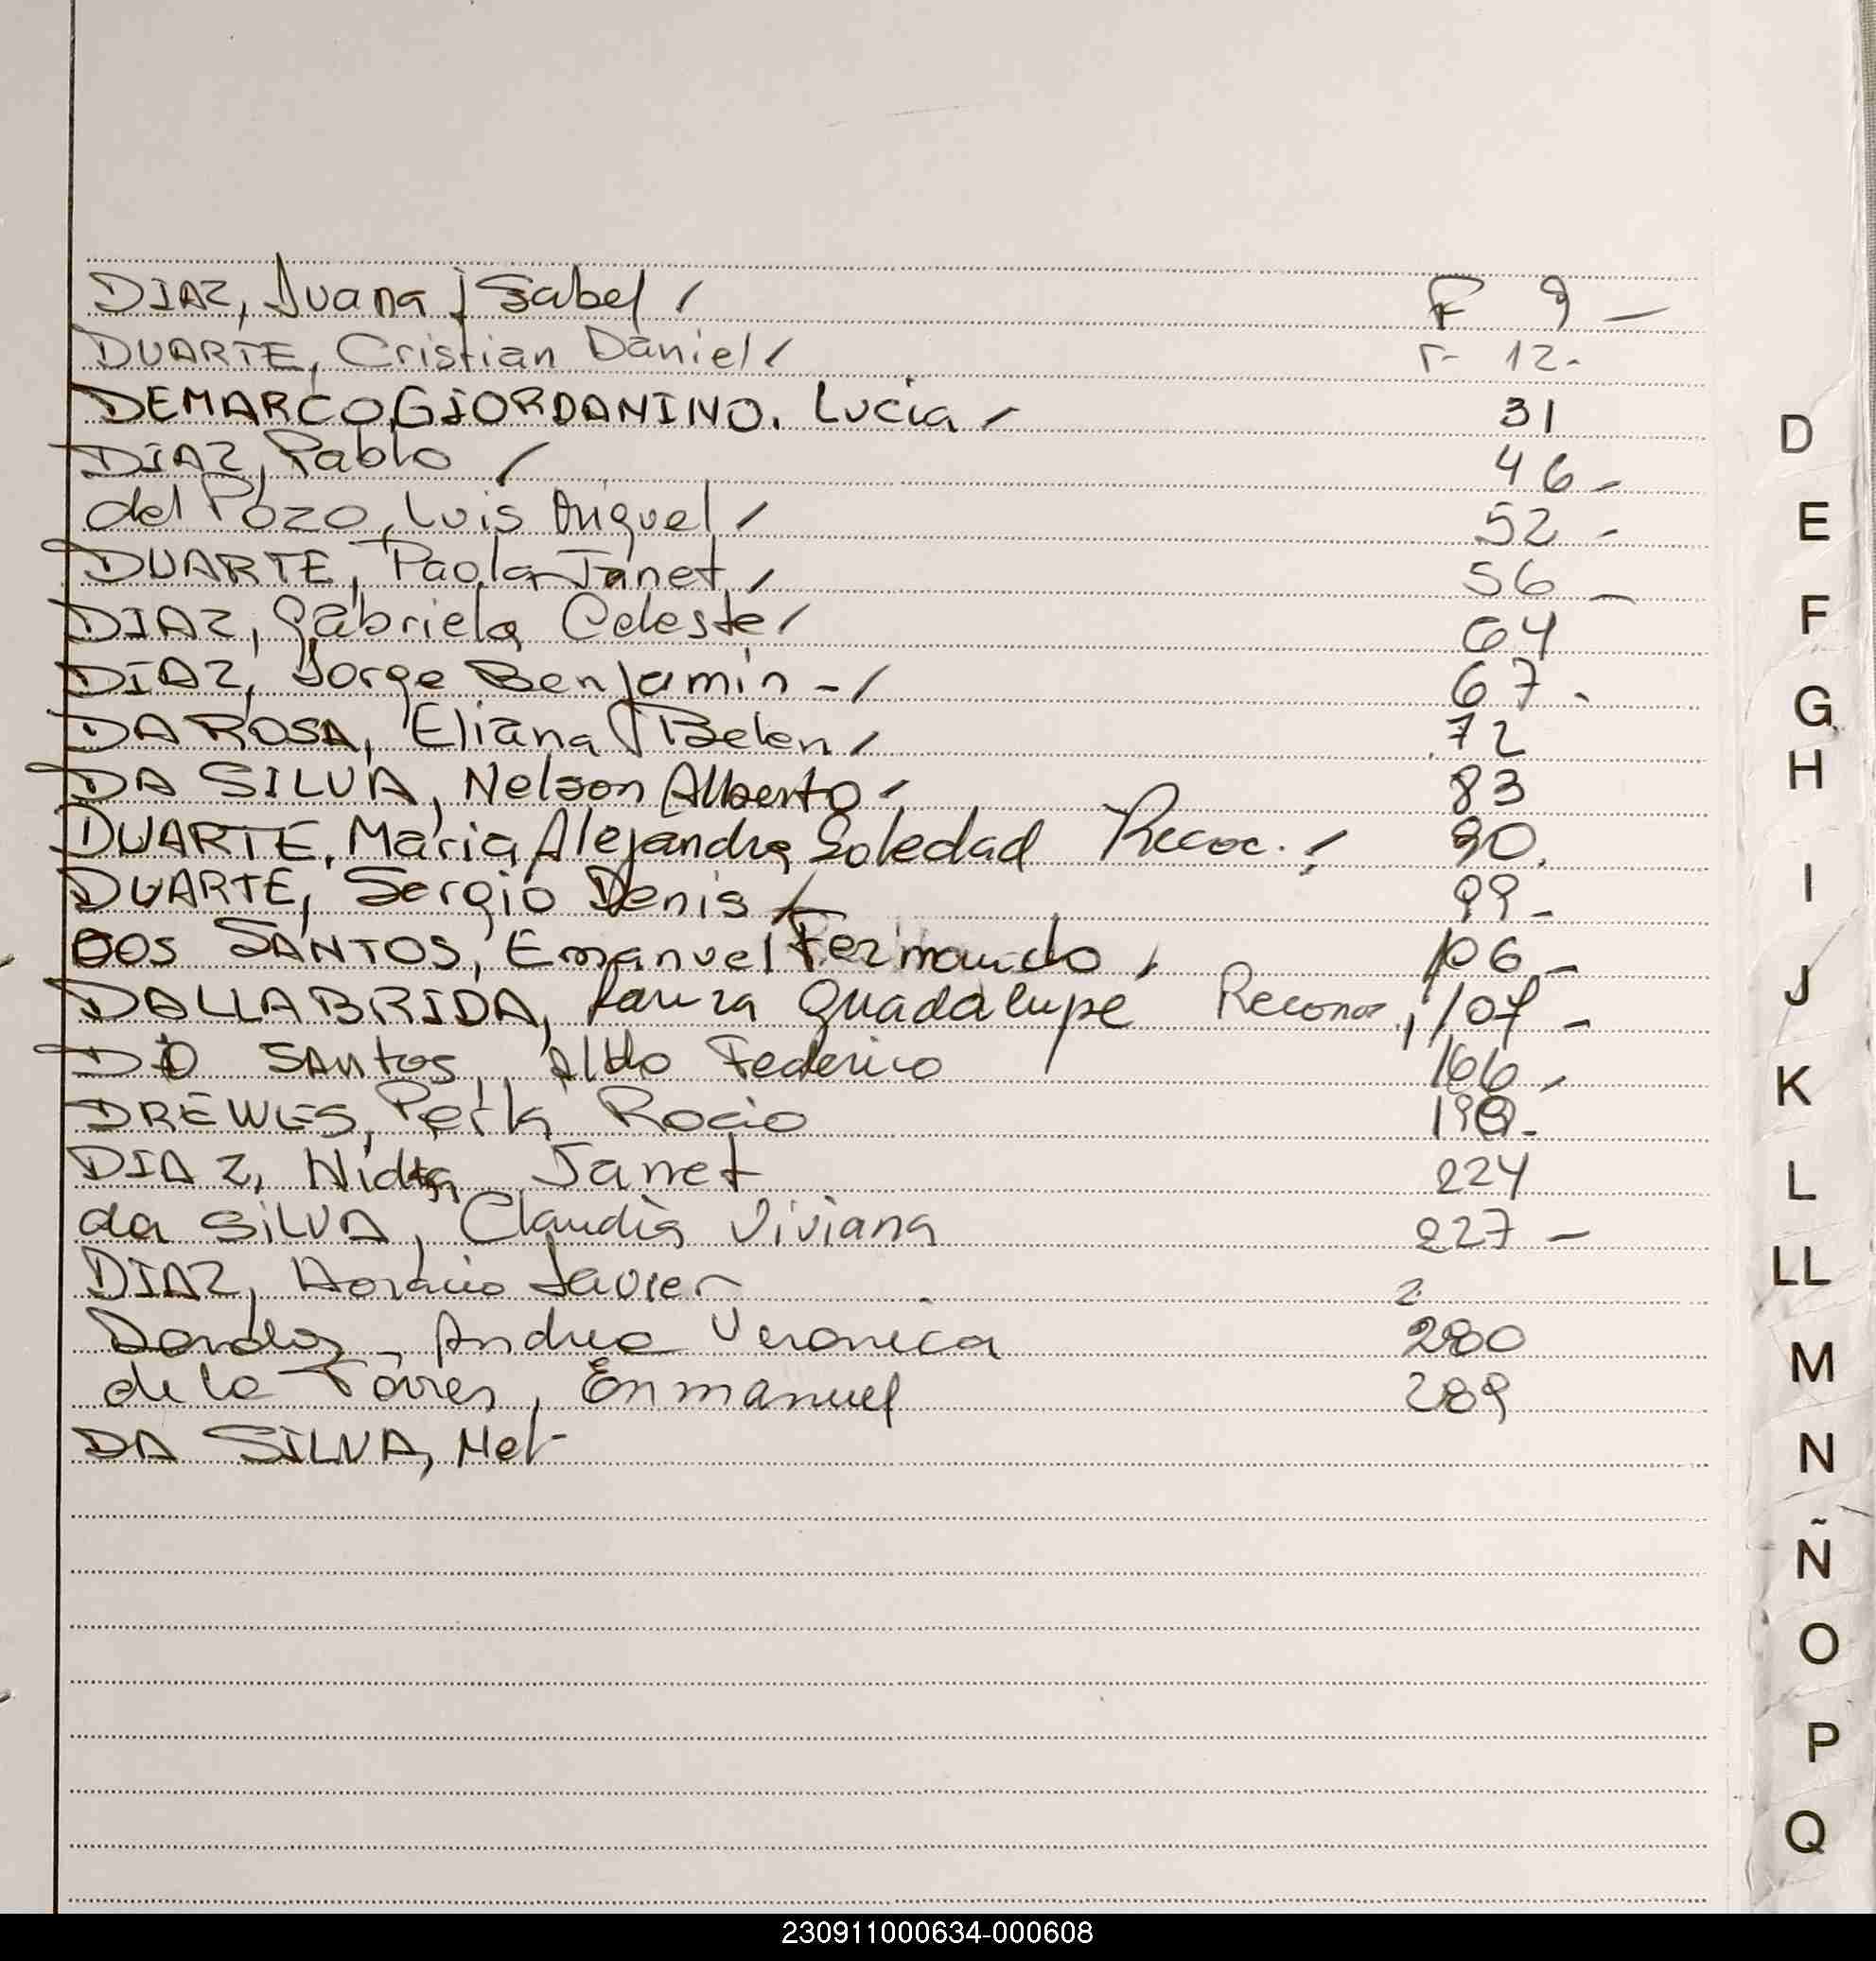 DIAZ, Juana Isabel / F 9 —
DUARTE, Cristian Daniel / F 12.
DEMARCO GIORDANINO. Lucia / 31
DIAZ, Pablo / 46 -
del Pozo, Luis Miguel / 52 -
DUARTE, Paola Janet / 56 —
DIAZ, Gabriela Celeste / 64
DIAZ, Jorge Benjamin - / 67 -
DA ROSA, Eliana Belen / 72
DA SILVA, Nelson Alberto / 83
DUARTE, Maria Alejandra Soledad Recoc. / 90.
DUARTE, Sergio Denis / 99 -
DOS SANTOS, Emanuel Fernando / 106 -
DALLABRIDA, Guadalupe Reconoc, 107 -
DO SANTOS, Aldo Federico 166 -
DREWES, Perla Rocio
DIAZ, Nidia Janet 224
da SILVA, Claudia Viviana 227 —
DIAZ, Horacio Javier 2
Andrea Veronica 280
de la Torres, Enmanuel 289
DA SILVA, Nel
D
E
F
G
H
I
J
K
L
LL
M
N
Ñ
O
P
Q
230911000634-000608